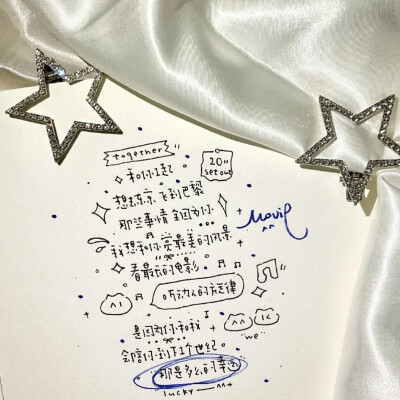 together
和你一起
20"
set out
想去东京 飞到巴黎
那些事情 全因为你
Movie
我想和你 赏最美的风景
看最长的电影
听动人的旋律
是因为你和我
we
会陪你到下个世纪。
那是多么的幸运
lucky